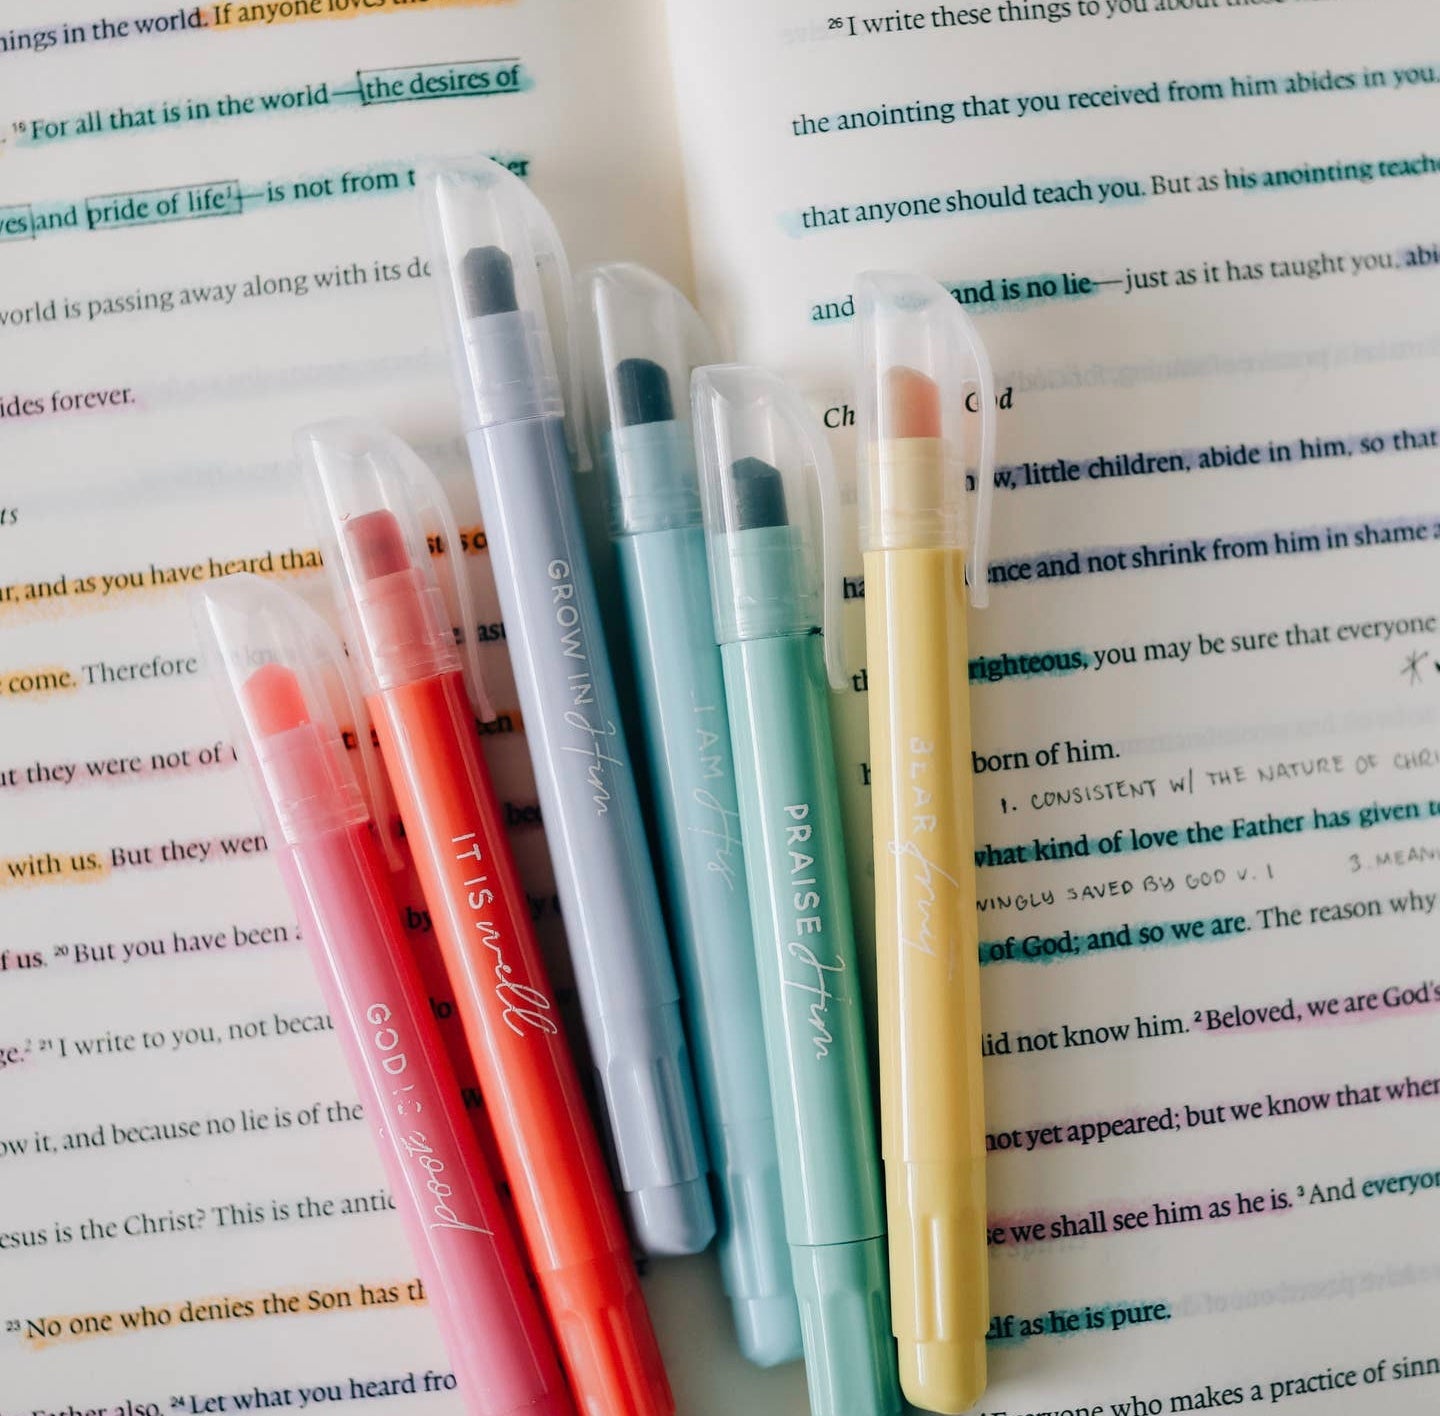 things in the world. If anyone loves the
16 For all that is in the world—the desires of
yes and pride of life1—is not from
world is passing away along with its
ides forever.
ts
r, and as you have heard that
come. Therefore
t they were not of
with us. But they
of us. 20 But you have been
ge.2 21 I write to you, not
ow it, and because no lie is of the
esus is the Christ? This is the
23 No one who denies the Son has
Father also. 24 Let what you heard
GOD IS good
IT IS well
GROW IN Him
I AM His
PRAISE Him
BEAR fruit
26 I write these things to you about
the anointing that you received from him abides in you,
that anyone should teach you. But as his anointing
and and is no lie—just as it has taught you,
Ch God
w, little children, abide in him, so that
ence and not shrink from him in shame
righteous, you may be sure that everyone
born of him.
1. CONSISTENT W/ THE NATURE OF
what kind of love the Father has given
INGLY SAVED BY GOD V. 1 3.
of God; and so we are. The reason why
did not know him. 2 Beloved, we are God's
not yet appeared; but we know that when
se we shall see him as he is. 3 And
elf as he is pure.
Everyone who makes a practice of